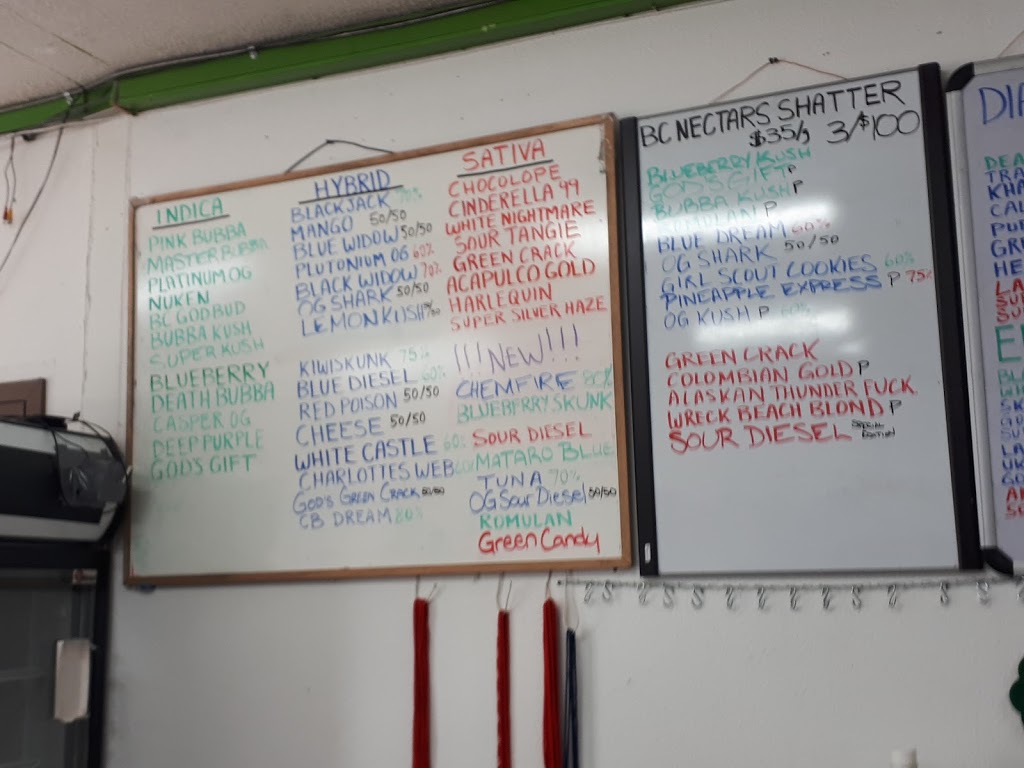 INDICA
PINK BUBBA
MASTER BUBBA
PLATINUM OG
NUKEN
BC GOD BUD
BUBBA KUSH
SUPER KUSH
BLUEBERRY
DEATH BUBBA
CASPER OG
DEEP PURPLE
GOD'S GIFT
HYBRID
BLACKJACK 70%
MANGO 50/50
BLUE WIDOW 50/50
PLUTONIUM OG 60%
BLACK WIDOW 70%
OG SHARK 50/50
LEMON KUSH
KIWISKUNK 75%
BLUE DIESEL 60%
RED POISON 50/50
CHEESE 50/50
WHITE CASTLE 60%
CHARLOTTES WEB
God's Green Crack 50/50
CB DREAM 80%
SATIVA
CHOCOLOPE
CINDERELLA '99
WHITE NIGHTMARE
SOUR TANGIE
GREEN CRACK
ACAPULCO GOLD
HARLEQUIN
SUPER SILVER HAZE
!!!NEW!!!
CHEMFIRE 80%
BLUEBERRY SKUNK
SOUR DIESEL
MATARO BLUE
TUNA 70%
OG Sour Diesel 50/50
ROMULAN
Green Candy
BC NECTARS SHATTER
$35/g 3/$100
BLUEBERRY KUSH
GOD'S GIFT P
BUBBA KUSH P
ROMULAN P
BLUE DREAM 60%
OG SHARK 50/50
GIRL SCOUT COOKIES 60%
PINEAPPLE EXPRESS P 75%
OG KUSH P 60%
GREEN CRACK
COLOMBIAN GOLD P
ALASKAN THUNDER FUCK
WRECK BEACH BLOND P
SOUR DIESEL SPECIAL EDITION
DIA
DEA
TRA
KHA
CAL
PUR
GRE
HE
LA
SU
SU